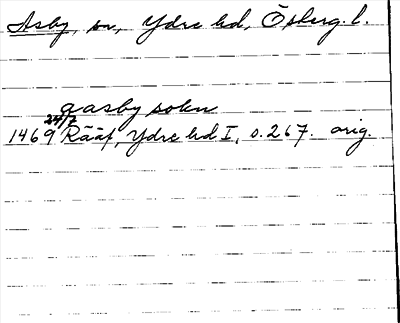 Asby, sn, Ydre hd, Österg. l.
aasby sokn
1469 24/7 Rääf, Ydre hd I, s. 267. orig.